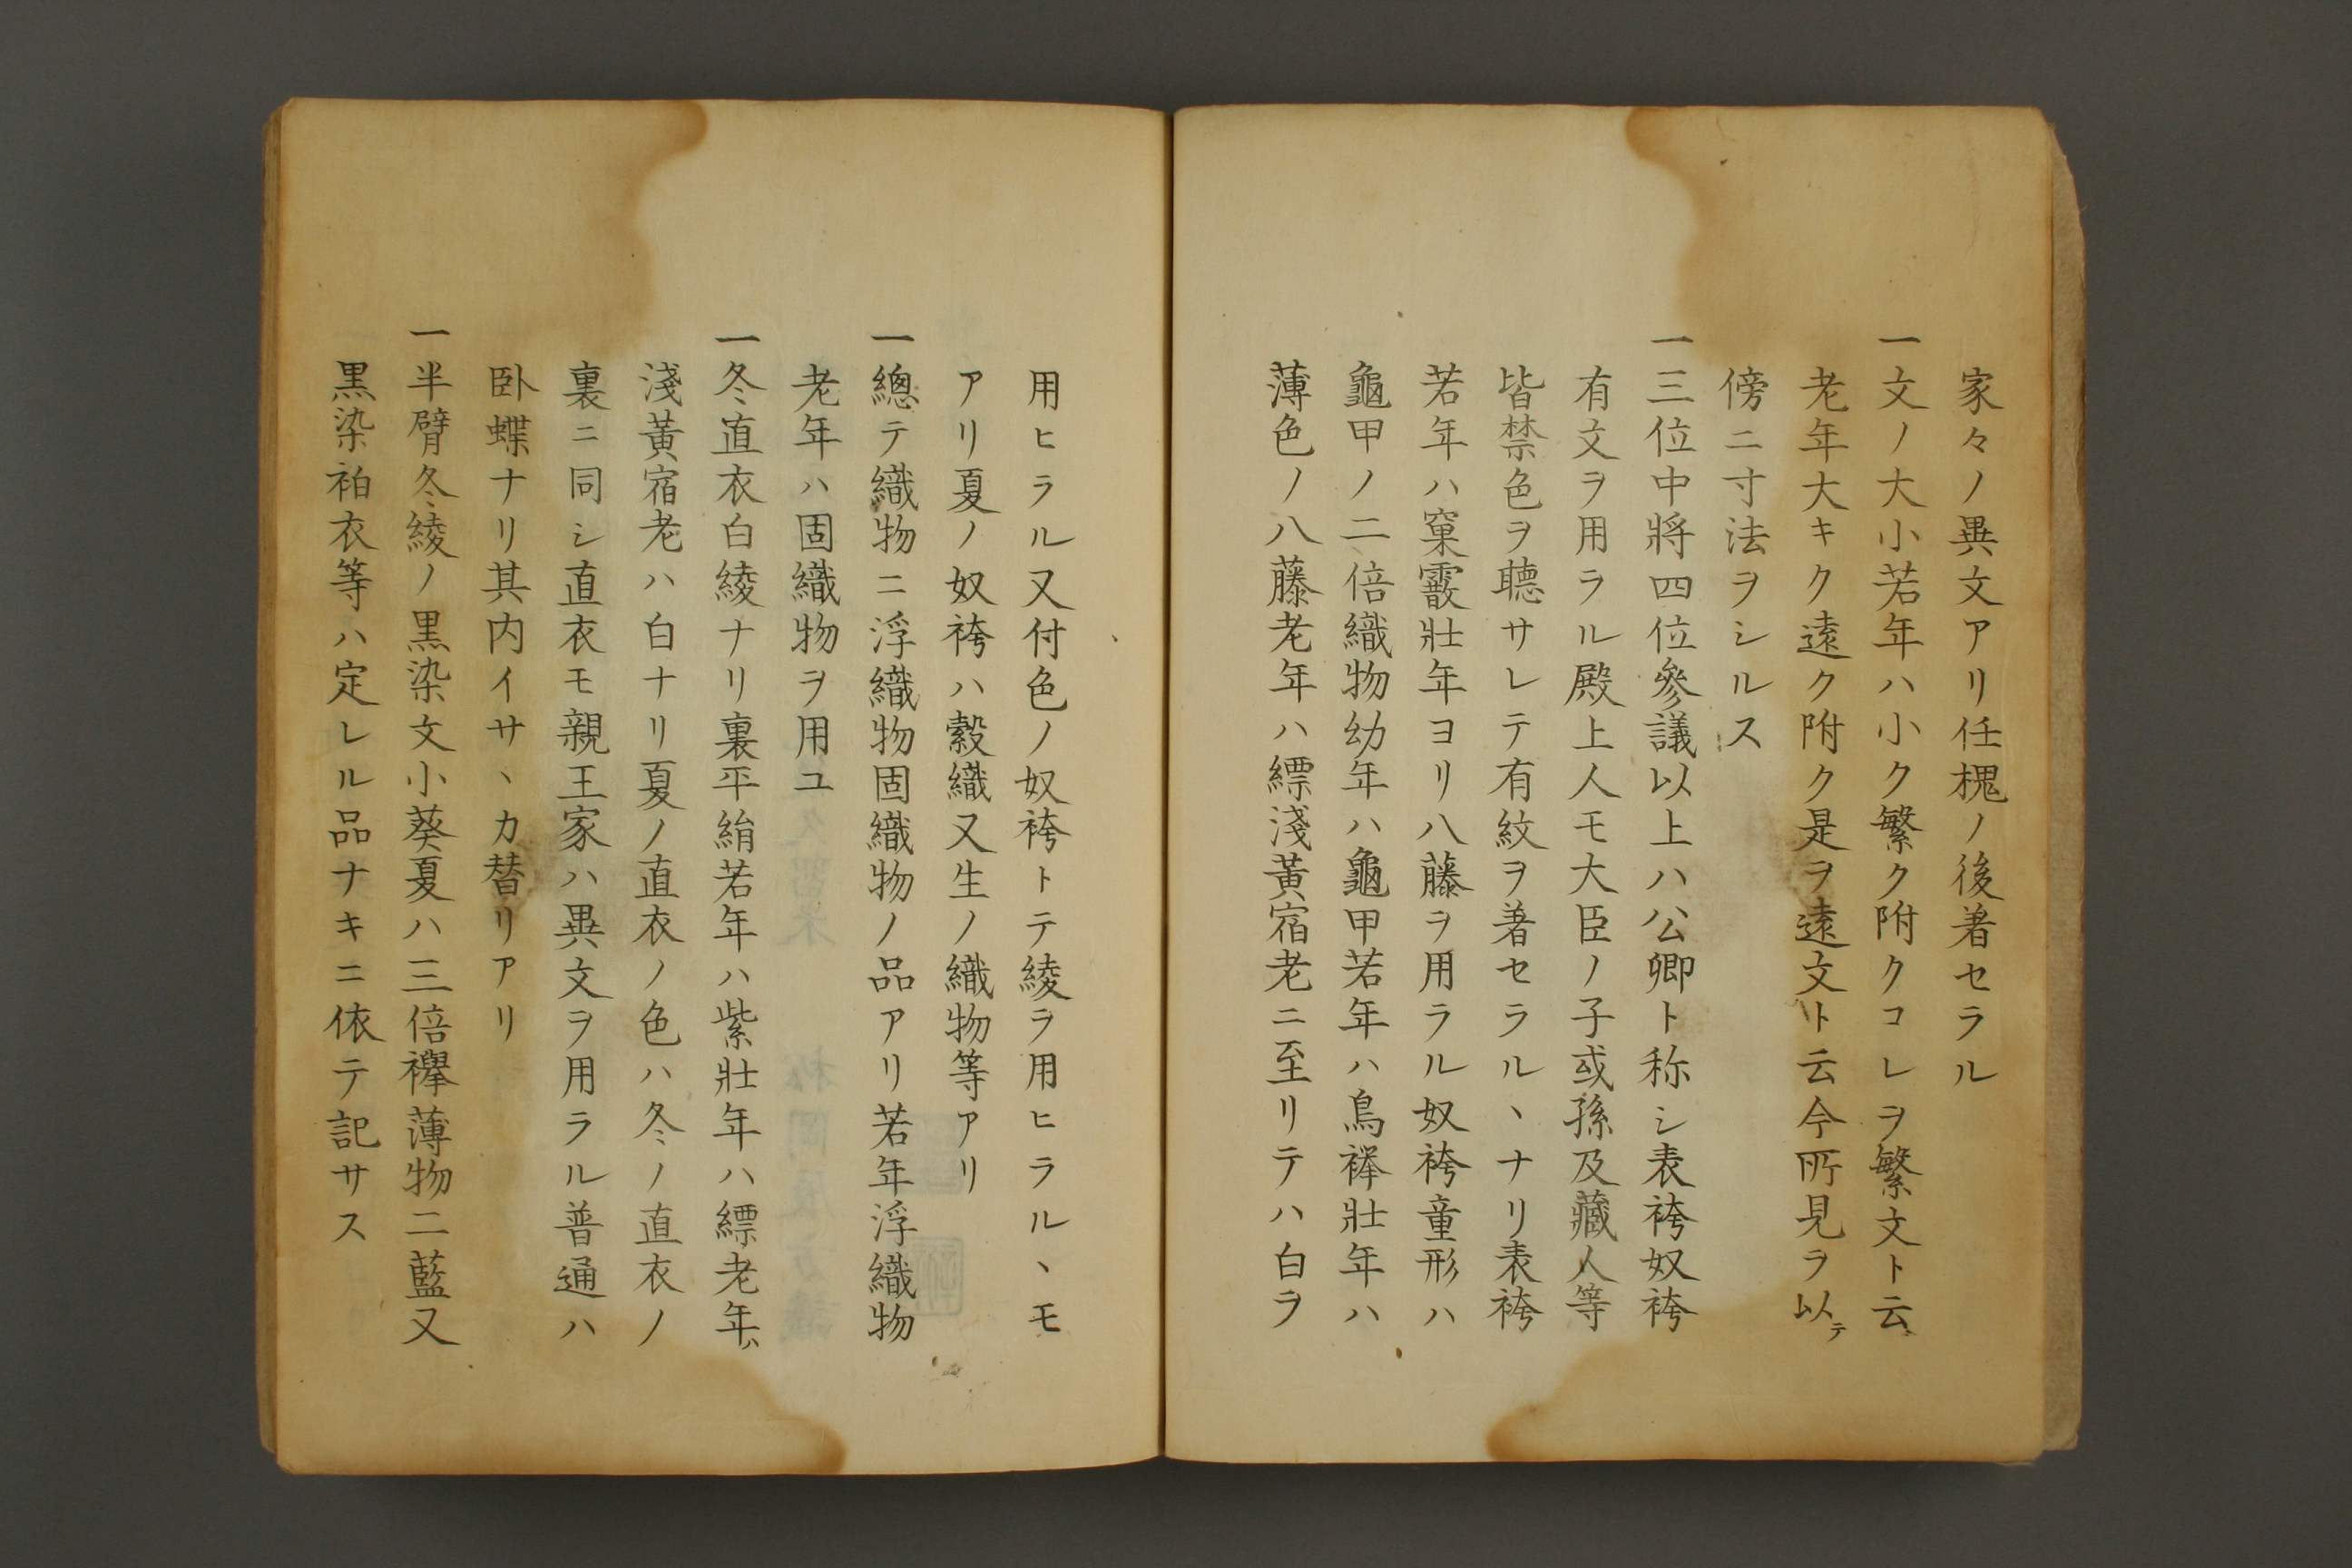 家々ノ異文アリ任槐ノ後著セラル
一文ノ大小若年ハ小ク繁ク附クコレヲ繁文ト云
老年大キク遠ク附ク是ヲ遠文ト云今所見ヲ以テ
傍ニ寸法ヲシルス
一三位中將四位參議以上ハ公卿ト称シ表袴奴袴
有文ヲ用ラル殿上人モ大臣ノ子或孫及藏人等
皆禁色ヲ聴サレテ有紋ヲ著セラルヽナリ表袴
若年ハ窠霰壯年ヨリ八藤ヲ用ラル奴袴童形ハ
龜甲ノ二倍織物幼年ハ龜甲若年ハ鳥襷壯年ハ
薄色ノ八藤老年ハ縹淺黃宿老ニ至リテハ白ヲ
用ヒラル又付色ノ奴袴トテ綾ヲ用ヒラルヽモ
アリ夏ノ奴袴ハ縠織又生ノ織物等アリ
一總テ織物ニ浮織物固織物ノ品アリ若年浮織物
老年ハ固織物ヲ用ユ
一冬直衣白綾ナリ裏平絹若年ハ紫壯年ハ縹老年ハ
淺黃宿老ハ白ナリ夏ノ直衣ノ色ハ冬ノ直衣ノ
裏ニ同シ直衣モ親王家ハ異文ヲ用ラル普通ハ
臥蝶ナリ其内イサヽカ替リアリ
一半臂冬綾ノ黒染文小葵夏ハ三倍襷薄物二藍又
黒染袙衣等ハ定レル品ナキニ依テ記サス